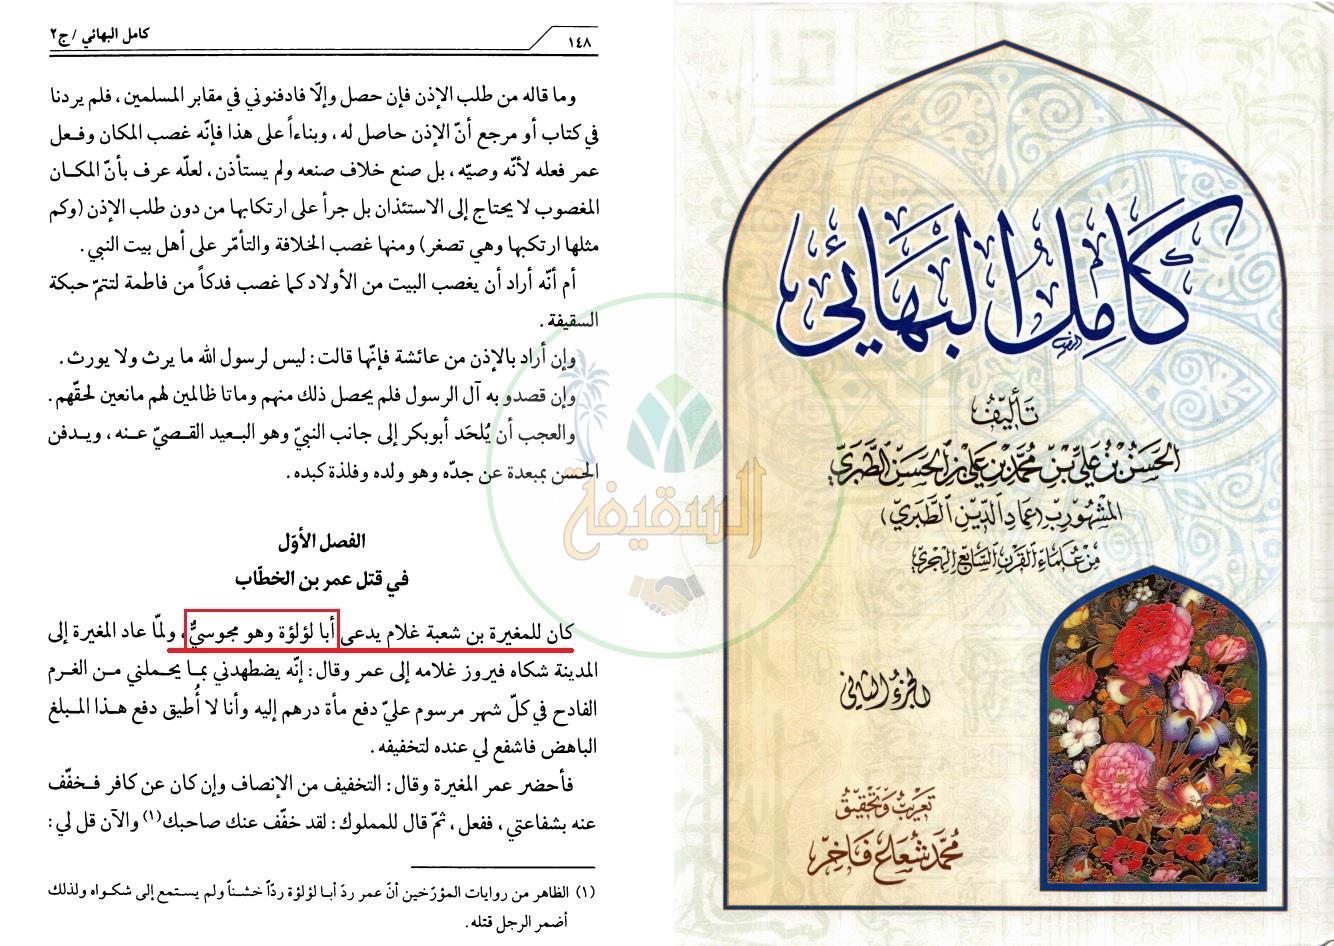 كامل البهائي / ج٢
١٤٨
وما قاله من طلب الإذن فإن حصل وإلّا فادفنوني في مقابر المسلمين ، فلم يردنا
في كتاب أو مرجع أنّ الإذن حاصل له ، وبناءاً على هذا فإنّه غصب المكان وفـعل
عمر فعله لأنّه وصيّه ، بل صنع خلاف صنعه ولم يستأذن ، لعلّه عرف بأنّ المكـان
المغصوب لا يحتاج إلى الاستئذان بل جرأ على ارتكابها من دون طلب الإذن (وكم
مثلها ارتكبها وهي تصغر) ومنها غصب الخلافة والتأمّر على أهل بيت النبي .
أم أنّه أراد أن يغصب البيت من الأولاد كما غصب فدكاً من فاطمة لتتمّ حبكة
السقيفة .
وإن أراد بالإذن من عائشة فإنّها قالت : ليس لرسول الله ما يرث ولا يورث .
وإن قصدو به آل الرسول فلم يحصل ذلك منهم وماتا ظالمين لهم مانعين لحقّهم .
والعجب أن يُلحَد أبوبكر إلى جانب النبيّ وهو البـعيد القـصيّ عـنه ، ويـدفن
الحسن بمبعدة عن جدّه وهو ولده وفلذة كبده .
الفصل الأوّل
في قتل عمر بن الخطّاب
كان للمغيرة بن شعبة غلام يدعى أبا لؤلؤة وهو مجوسيٌّ ، ولمّا عاد المغيرة إلى
المدينة شكاه فيروز غلامه إلى عمر وقال : إنّه يضطهدني بمـا يحـملني مـن الغـرم
الفادح في كلّ شهر مرسوم عليّ دفع مأة درهم إليه وأنا لا أُطيق دفع هـذا المـبلغ
الباهض فاشفع لي عنده لتخفيفه .
فأحضر عمر المغيرة وقال : التخفيف من الإنصاف وإن كان عن كافر فـخفّف
عنه بشفاعتي ، ففعل ، ثمّ قال للمملوك : لقد خفّف عنك صاحبك (١) والآن قل لي :
(١) الظاهر من روايات المؤرّخين أنّ عمر ردّ أبـا لؤلؤة ردّاً خشـناً ولم يسـتمع إلى شكـواه ولذلك
أضمر الرجل قتله .
السقيفة
كَامِلُ البَهَائي
تَأليفُ
الحَسَن بْن عَلي بْن مُحَمَّد بْن عَلي بْن الحَسَن الطَّبَري
المشهُور بـ (عمَاد الدّين الطَّبَري)
مِن عُلمَاء القَرْن السَّابع الهِجري
الجزء الثاني
تَعريبُ وَتحقيقُ
مُحمَّد شُعَاع فَاخِر